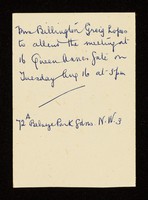 Mrs Billington Greig hopes
to attend the meeting at
16 Queen Anne's Gate on
Tuesday Aug 16 at 5pm
72A Belsize Park Gdns. N.W.3